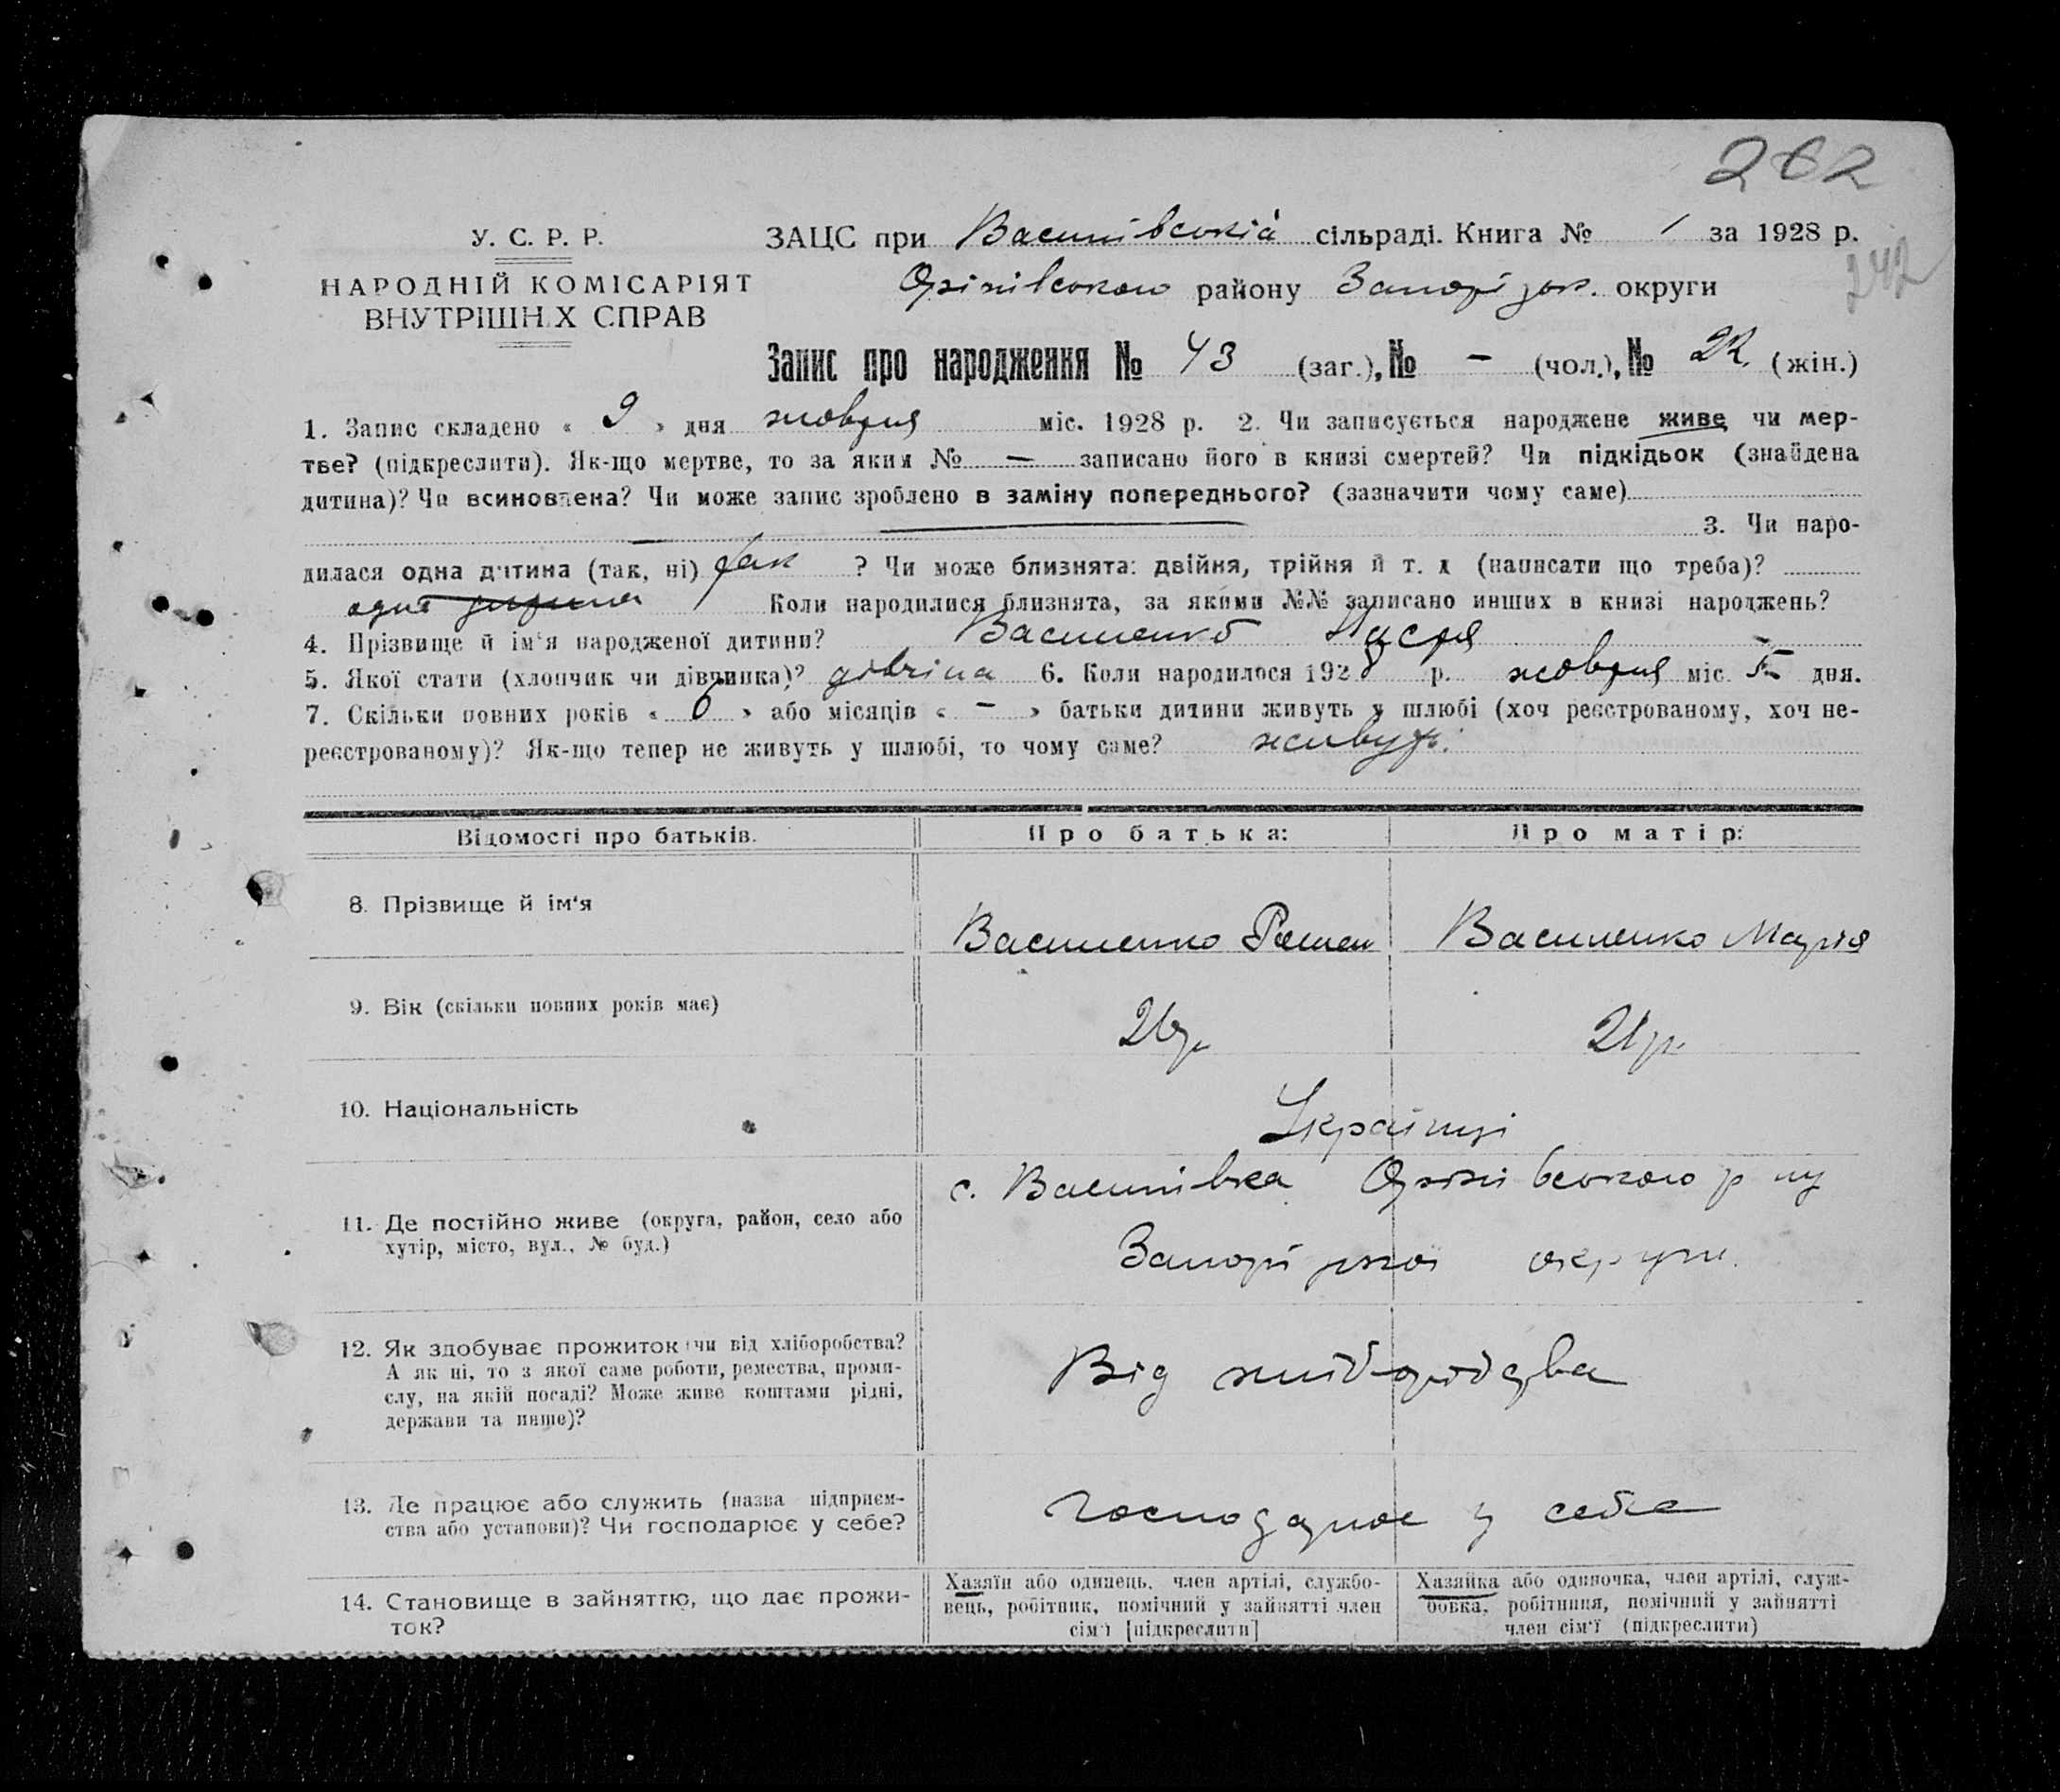 262
У. С. Р. Р.
ЗАЦС при Василівській сільраді. Книга № 1 за 1928 р.
242
НАРОДНІЙ КОМІСАРІЯТ
ВНУТРІШНІХ СПРАВ
Оріхівського району Запорізьк. округи
Запис про народження № 43 (заг.), № – (чол.), № 22 (жін.)
1. Запис складено « 9 » дня жовтня міс. 1928 р. 2. Чи записується народжене живе чи мер-
тве? (підкреслити). Як-що мертве, то за яким № — записано його в книзі смертей? Чи підкідьок (знайдена
дитина)? Чи всиновлена? Чи може запис зроблено в заміну попереднього? (зазначити чому саме)
— 3. Чи наро-
дилася одна дитина (так, ні) так ? Чи може близнята: двійня, трійня й т. д (написати що треба)?
одна дитина Коли народилися близнята, за якими №№ записано инших в книзі народжень?
4. Прізвище й ім'я народженої дитини? Василенко Настя
5. Якої стати (хлопчик чи дівчинка)? дівчина 6. Коли народилося 1928 р. жовтня міс. 5 дня.
7. Скільки повних років « 6 » або місяців « – » батьки дитини живуть у шлюбі (хоч реєстрованому, хоч не-
реєстрованому)? Як-що тепер не живуть у шлюбі, то чому саме? живуть.
Відомості про батьків. Про батька: Про матір:
8. Прізвище й ім'я Василенко Василенко Марія
9. Вік (скільки повних років має) 26 р. 21 р.
10. Національність Українці
11. Де постійно живе (округа, район, село або
хутір, місто, вул., № буд.)
с. Василівка Оріхівського р-ну
Запорізької округи.
12. Як здобуває прожиток (чи від хліборобства?
А як ні, то з якої саме роботи, ремества, проми-
слу, на якій посаді? Може живе коштами рідні,
держави та инше)?
Від хліборобства
13. Де працює або служить (назва підприєм-
ства або установи)? Чи господарює у себе?
Господарює у себе
14. Становище в зайняттю, що дає прожи-
ток?
Хазяїн або одинець, член артілі, службо-
вець, робітник, помічний у зайнятті член
сім'ї [підкреслити]
Хазяйка або одиночка, член артілі, служ-
бовка, робітниця, помічний у зайнятті
член сім'ї (підкреслити)